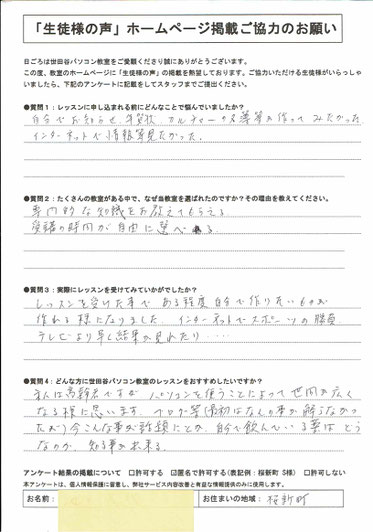 「生徒様の声」ホームページ掲載ご協力のお願い
日ごろは世田谷パソコン教室をご愛顧くださり誠にありがとうございます。
この度、教室のホームページに「生徒様の声」の掲載を熱望しております。ご協力いただける生徒様がいらっしゃ
いましたら、下記のアンケートに記載をしてスタッフまでご提出ください。
●質問1：レッスンに申し込まれる前にどんなことで悩んでいましたか？
自分でお知らせ、年賀状、カルチャーの名簿等を作ってみたかった
インターネットで情報等見たかった。
●質問2：たくさんの教室がある中で、なぜ当教室を選ばれたのですか？その理由を教えてください。
専門的な知識をお教えてもらえる
受講の時間が自由に選べる
●質問3：実際にレッスンを受けてみていかがでしたか？
レッスンを受けた事で ある程度自分で作りたいものが
作れる様になりました。インターネットでスポーツの勝負
テレビより早く結果が見れたり‥‥
●質問4：どんな方に世田谷パソコン教室のレッスンをおすすめしたいですか？
主人は高齢者ですが パソコンを使うことによって世間が広く
なる様に思います。ブログ等(最初はなんの事か解らなかっ
たが)今こんな事が話題にとか、自分で飲んでいる薬はどう
なのか、知る事が出来る。
アンケート結果の掲載について □許可する ☑匿名で許可する(表記例：桜新町 S様) □許可しない
本アンケートは、個人情報保護に留意し、弊社サービス内容改善と有益な情報提供のみに使用します。
お名前：
お住まいの地域：桜新町